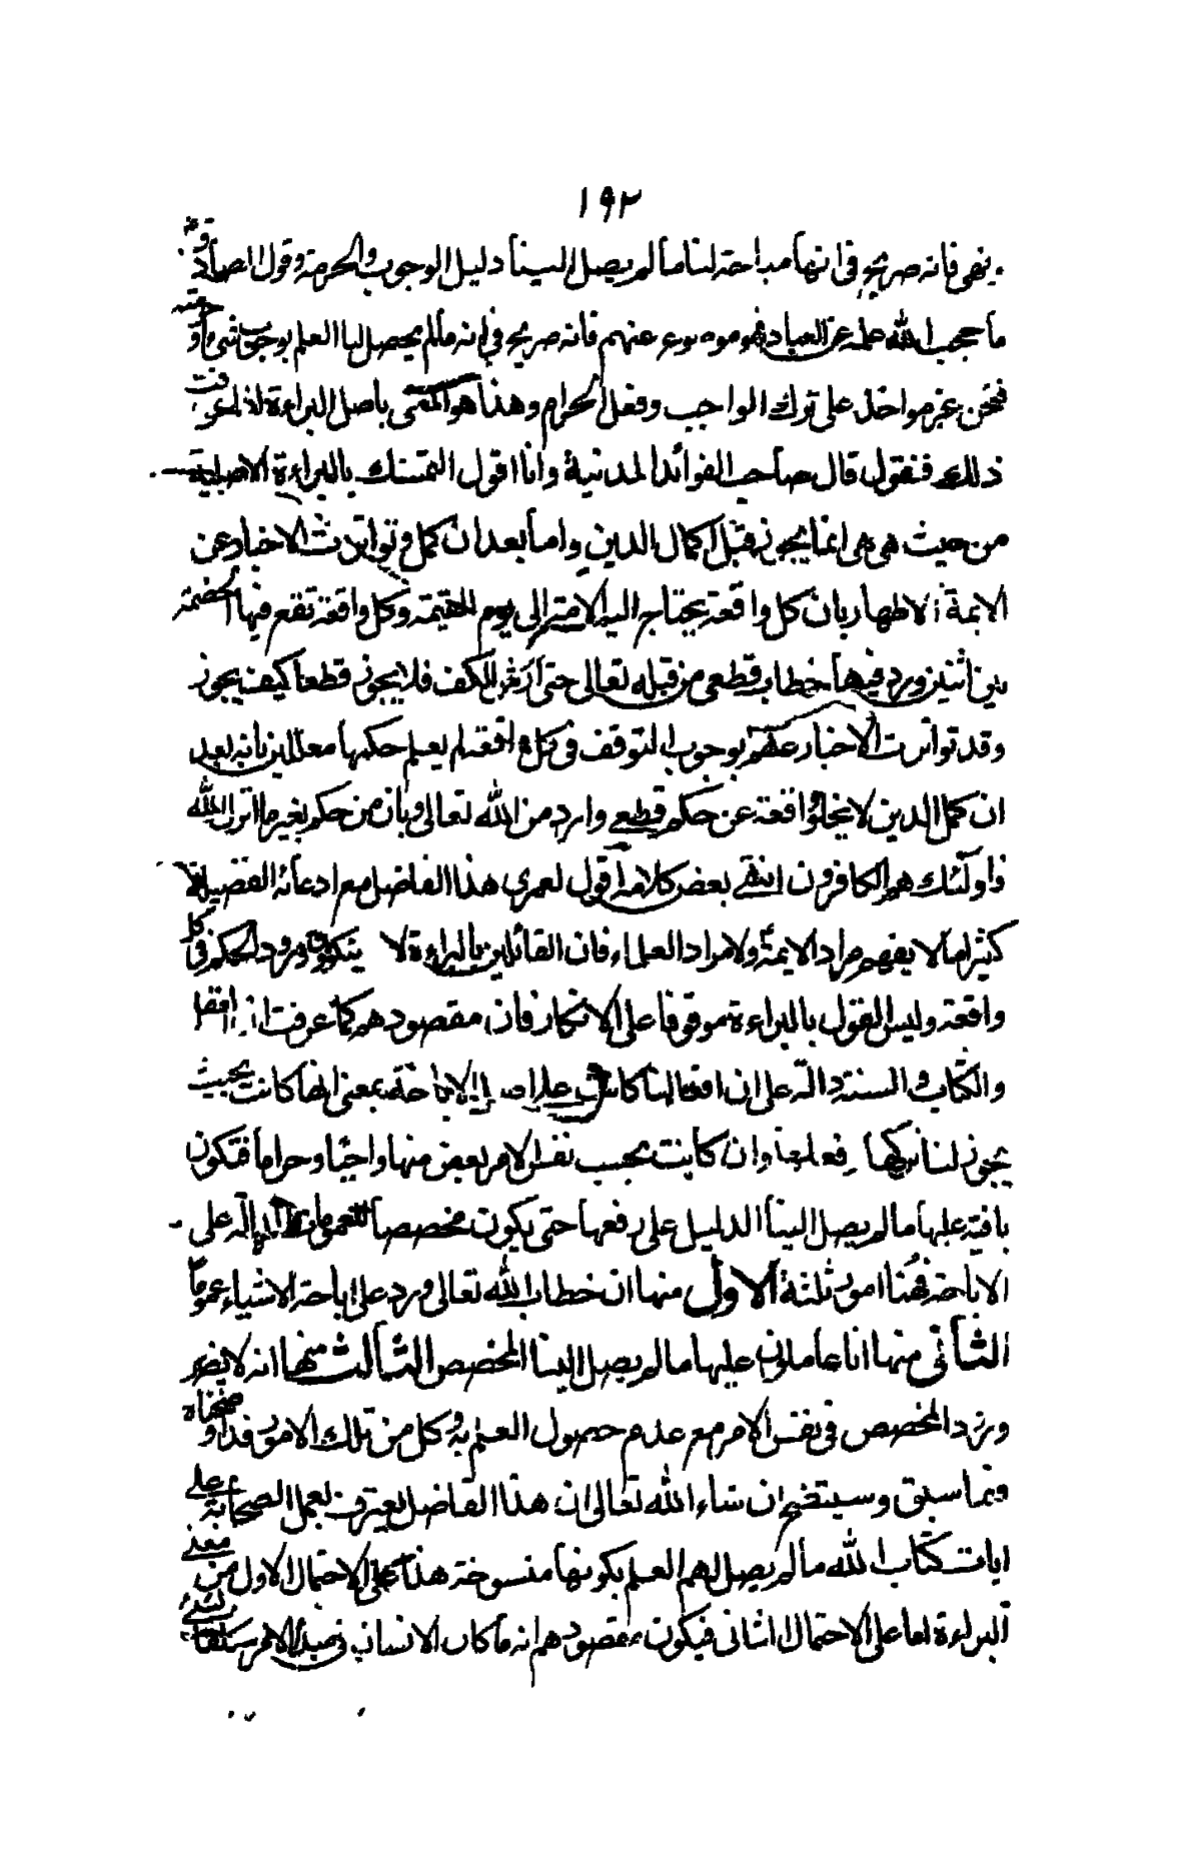 ١٩٢
نهى فانه صريح فى انها مباحة لنا ما لم يصل الينا دليل الوجوب والحرمة وقول الصادق ع
ما حجب الله علمه عن العباد فهو موضوع عنهم فانه صريح فى انه ما لم يحصل لنا العلم بوجوب شئ او حرمته
فنحن غير مواخذ على ترك الواجب وفعل الحرام وهذا هو المعنى باصل البراءة اذا عرفت
ذلك فنقول قال صاحب الفوائد المدنية وانا اقول التمسك بالبراءة الاصلية
من حيث هى هى انما يجوز قبل اكمال الدين واما بعد ان كمل وتواترت الاخبار عن
الائمة الاطهار بان كل واقعة يحتاج اليه الامة الى يوم القيمة وكل واقعة تقع فيها الخصومة
بين اثنين ورد فيها خطاب قطعى من قبله تعالى حتى ارش الكف فلا يجوز قطعا كيف يجوز
وقد تواترت الاخبار عنهم بوجوب التوقف فى كل واقعة لم يعلم حكمها معللين بانه بعد
ان كمل الدين لا يخلو واقعة عن حكم قطعى وارد من الله تعالى وبان من حكم بغير ما انزل الله
فاولئك هم الكافرون انتهى بعض كلامه اقول لعمرى هذا الفاضل مع ادعائه الفضيلة
كثيرا ما لا يفهم مراد الائمة ولا مراد العلماء فان القائلين بالبراءة لا ينكرون ورود الحكم فى كل
واقعة وليس القول بالبراءة موقوفا على الانكار فان مقصودهم كما عرفت ان
والكتاب والسنة دالة على ان افعالنا كانت على الاباحة بمعنى انها كانت بحيث
يجوز لنا تركها وفعلها وان كانت بحسب نفس الامر بعض منها واجبا وحراما فتكون
باقية عليها ما لم يصل الينا الدليل على رفعها حتى يكون مخصصا للعمومات الدالة على
الاباحة فهنا امور ثلثة الاول منها ان خطاب الله تعالى ورد على اباحة الاشياء عموما
الثانى منها انا عاملون عليها ما لم يصل الينا المخصص الثالث منها انه لا يضر
ورود المخصص فى نفس الامر مع عدم حصول العلم به وكل من تلك الامور قد اوضحناه
فيما سبق وسيتضح ان شاء الله تعالى ان هذا الفاضل يعترف بعمل الصحابة على
ايات كتاب الله ما لم يصل لهم العلم بكونها منسوخة هذا على الاحتمال الاول من معنى
البراءة اما على الاحتمال الثانى فيكون مقصودهم انه ما كان الانسان فى مبدء الامر مكلفا